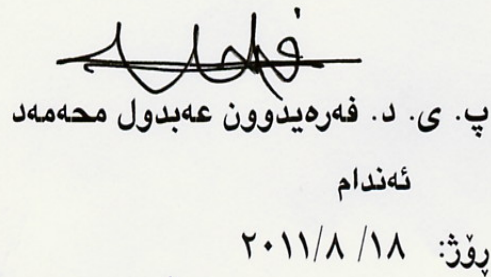 پ. ی. د. فەرەیدوون عەبدول محەمەد
ئەندام
رۆژ: ١٨/ ٨/ ٢٠١١